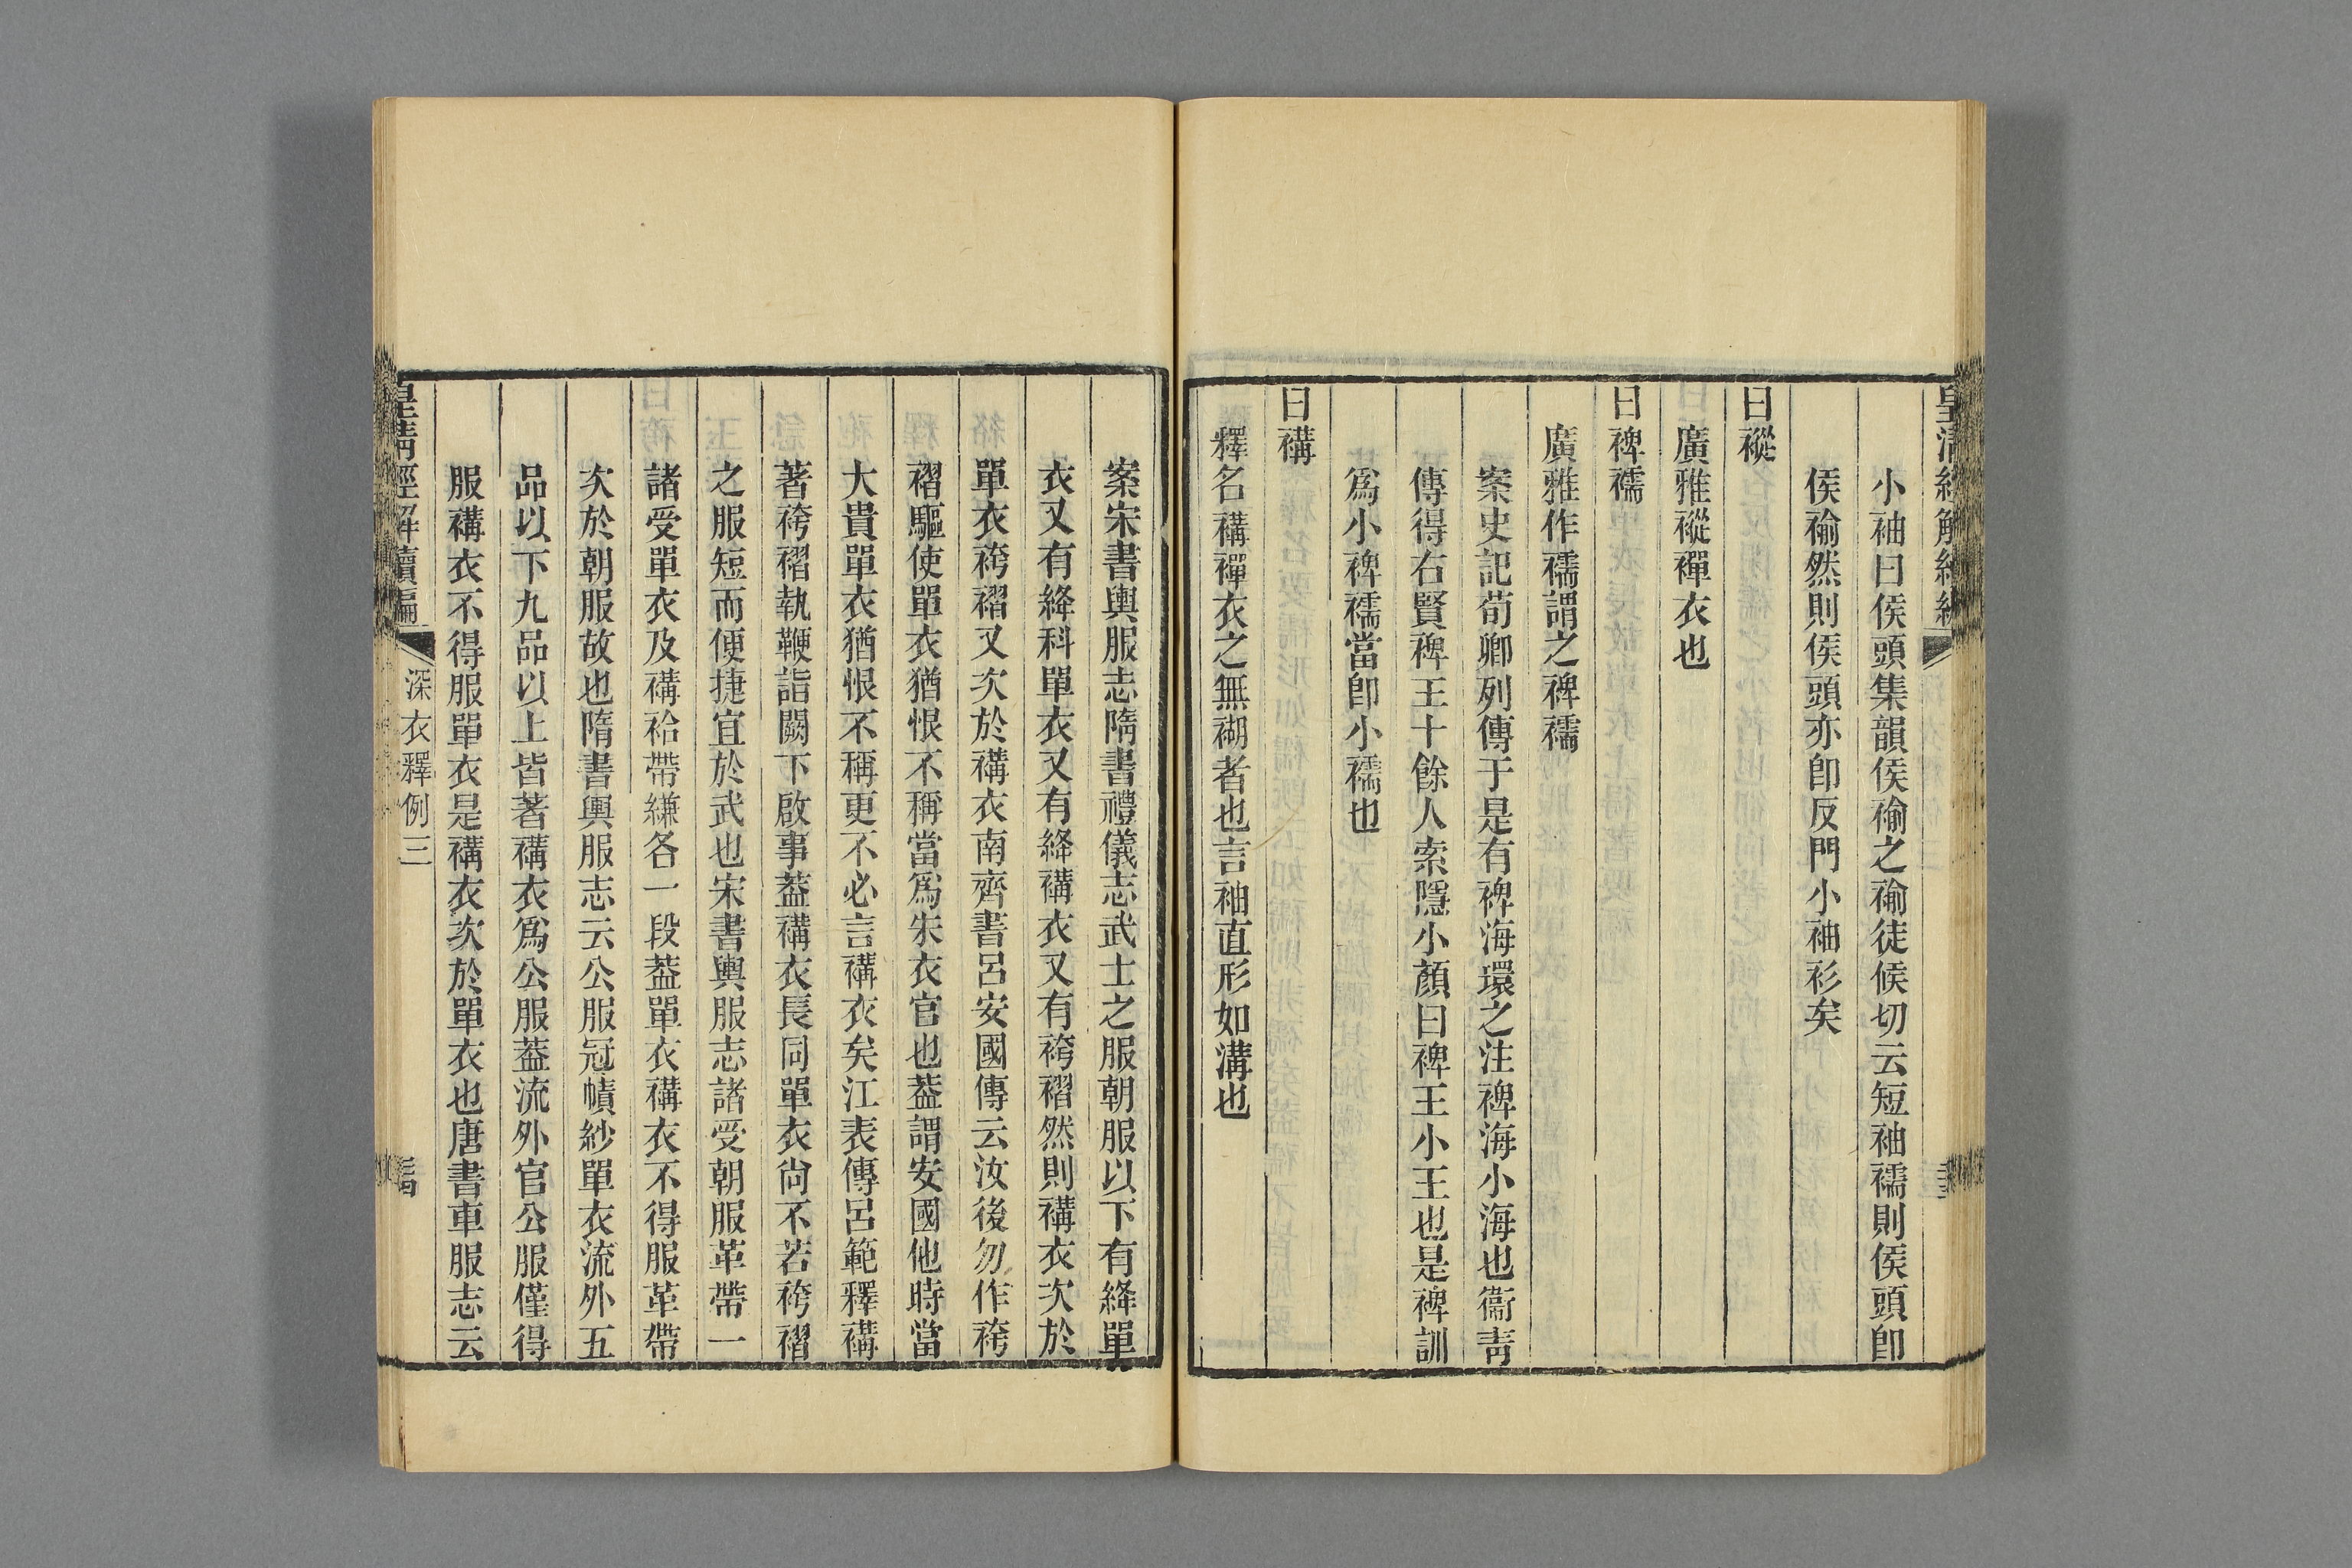 小袖曰侯頭集韻侯褕之褕徒候切云短袖襦則侯頭卽
侯褕然則侯頭亦卽反門小袖衫矣
曰褷
廣雅褷襌衣也
曰裨襦
廣雅作襦謂之裨襦
案史記荀卿列傳于是有裨海環之注裨海小海也衞靑
傳得右賢裨王十餘人索隱小顏曰裨王小王也是裨訓
爲小裨襦當卽小襦也
曰褠
釋名褠襌衣之無褠者也言袖直形如溝也
案宋書輿服志隋書禮儀志武士之服朝服以下有絳單
衣又有絳科單衣又有絳褠衣又有袴褶然則褠衣次於
單衣袴褶又次於褠衣南齊書呂安國傳云汝後勿作袴
褶驅使單衣猶恨不稱當爲朱衣官也葢謂安國他時當
大貴單衣猶恨不稱更不必言褠衣矣江表傳呂範釋褠
著袴褶執鞭詣闕下啟事葢褠衣長同單衣尙不若袴褶
之服短而便捷宜於武也宋書輿服志諸受朝服革帶一
諸受單衣及褠袷帶縑各一段葢單衣褠衣不得服革帶
次於朝服故也隋書輿服志云公服冠幘紗單衣流外五
品以下九品以上皆著褠衣爲公服葢流外官公服僅得
服褠衣不得服單衣是褠衣次於單衣也唐書車服志云
皇淸經解續編
深衣釋例三